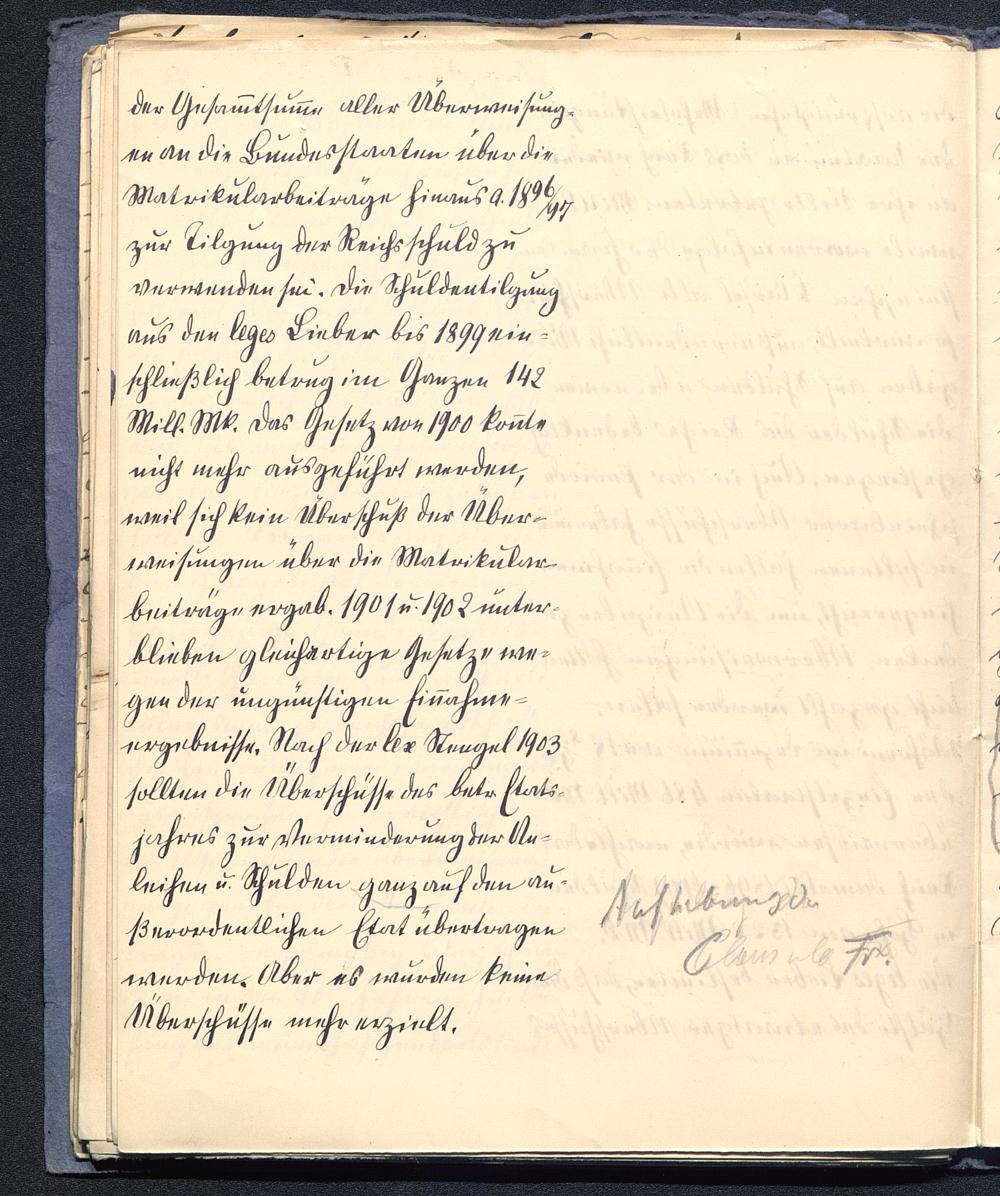 der Gesam̅tsum̅e aller Überweisung-
en an die Bundesstaaten über die
Matrikularbeiträge hinaus a. 1896/97
zur Tilgung der Reichsschuld zu
verwenden sei. Die Schuldentilgung
aus den leges Lieber bis 1899 ein=
schließlich betrug im Ganzen 142
Mill. Mk. Das Gesetz von 1900 kon̅te
nicht mehr ausgeführt werden,
weil sich kein Überschuß der Über-
weisungen über die Matrikular-
beiträge ergab. 1901 u. 1902 unter-
blieben gleichartige Gesetze we=
gen der ungünstigen Ein̅ahme=
ergebnisse. Nach der lex Stengel 1903
sollten die Überschüsse des betr. Etats-
jahres zur Verminderung der An=
leihen u. Schulden ganz auf den au-
ßerordentlichen Etat übertragen
werden. Aber es wurden keine
Überschüsse mehr erzielt.
Aufhebung der
Clausula Fr.